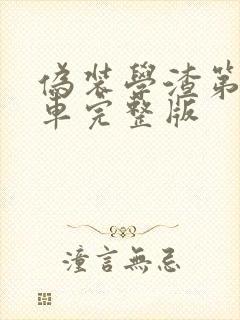 偽裝學渣第
車完整版
潼言無忌